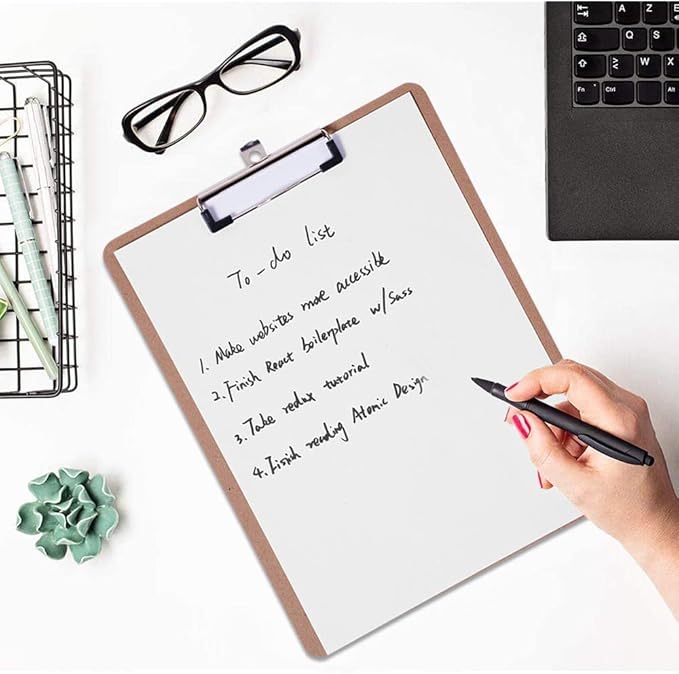 To-do list
1. Make websites more accessible
2. Finish React boilerplate w/Sass
3. Take redux tutorial
4. Finish reading Atomic Design
A Z E
Q S
W X
Fn Ctrl Alt